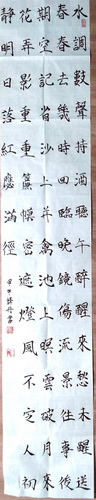 水調數聲持酒聽午醉醒來愁未醒送
春春去幾時回臨晚鏡傷流景往事後
期空記省沙上並禽池上暝雲破月來
花弄影重重簾幕密遮燈風不定人初
靜明日落紅應滿徑